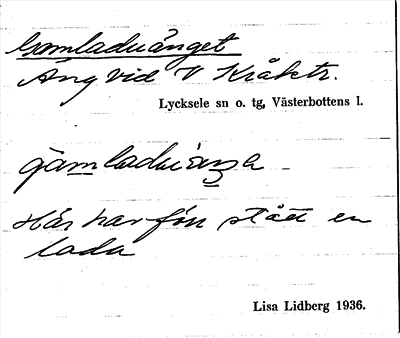 Gamladuånget
Äng vid V Kråktr.
Lycksele sn o. tg, Västerbottens l.
gamladuånge
Här har förr stått en
lada
Lisa Lidberg 1936.